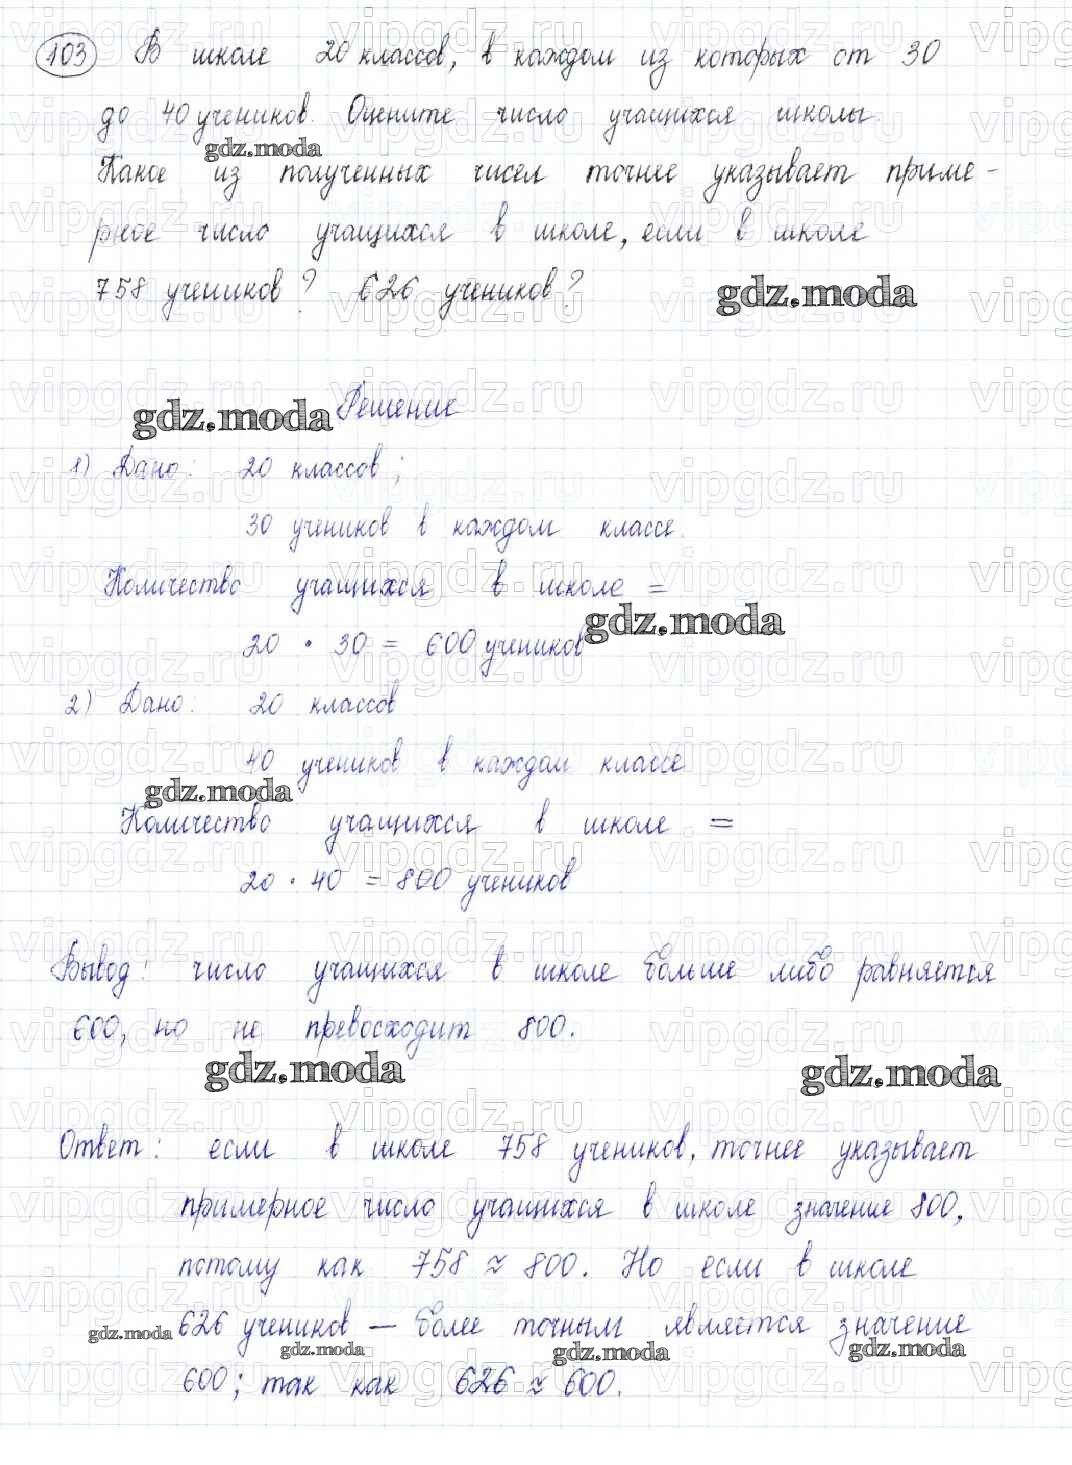 103 В школе 20 классов, в каждом из которых от 30
до 40 учеников. Оцените число учащихся школы.
gdz.moda
Какое из полученных чисел точнее указывает приме-
рное число учащихся в школе, если в школе
758 учеников? 626 учеников?
gdz.moda
Решение
gdz.moda
1) Дано: 20 классов;
30 учеников в каждом классе.
Количество учащихся в школе =
gdz.moda
20 · 30 = 600 учеников
2) Дано: 20 классов
40 учеников в каждом классе
gdz.moda
Количество учащихся в школе =
20 · 40 = 800 учеников
Вывод: число учащихся в школе больше либо равняется
600, но не превосходит 800.
gdz.moda gdz.moda
Ответ: если в школе 758 учеников, точнее указывает
примерное число учащихся в школе значение 800,
потому как 758 ≈ 800. Но если в школе
626 учеников — более точным является значение
gdz.moda gdz.moda gdz.moda gdz.moda
600; так как 626 ≈ 600.
vipgdz.ru